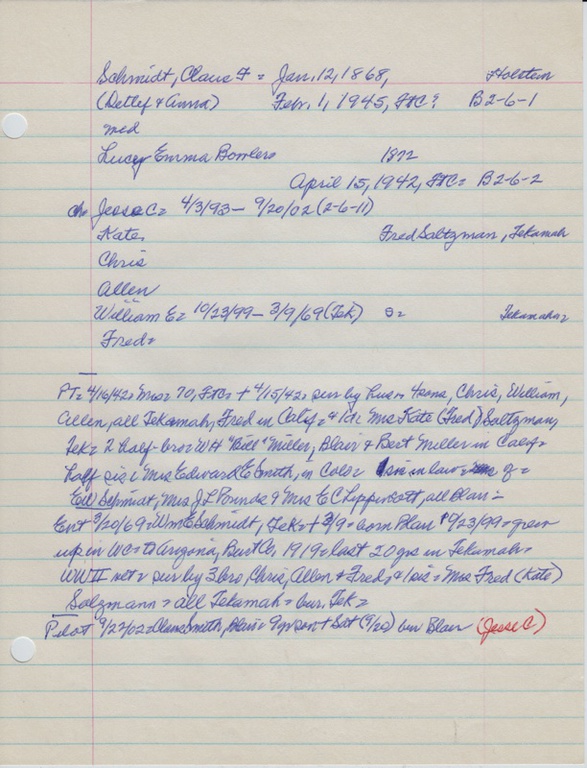 Schmidt, Claus F = Jan. 12, 1868, Holstein
(Detlef & Anna) Febr. 1, 1945, FTC= B2-6-1
med
Lucy Emma Bowlers 1872
April 15, 1942, FTC= B2-6-2
ch Jesse C= 4/3/93 - 9/20/02 (2-6-11)
Kate, Fred Saltzman, Tekamah
Chris
Allen
William E= 10/23/99 - 3/9/69 (Tek) Tekamah=
Fred=
PT= 4/16/42= Mrs= 70, FTC= + 4/15/42= sur by hus= 4 sons, Chris, William,
Allen, all Tekamah, Fred in Calif= & 1 da Mrs Kate (Fred) Saltzman,
Tek= 2 half-bro= WH "Bill" Miller, Blair & Bert Miller in Calif=
half sis= Mrs Edward E Smith, in Color sis in law of=
EW Schmidt, Mrs J L Pounds & Mrs E C Lippincott, all Blair=
Ent 3/20/69= Wm E Schmidt, Tek= + 3/9= born Blair 10/23/99= grew
up in WC= to Arizona, Burt Co, 1919= last 20 yrs in Tekamah=
WW II vet= sur by 3 bro, Chris, Allen & Fred, & 1 sis= Mrs Fred (Kate)
Salzmann= all Tekamah= bur. Tek=
Pilot 9/27/02= Claus Smith, Blair= 9 yr son + Sat (9/20) bur Blair (Jesse C)